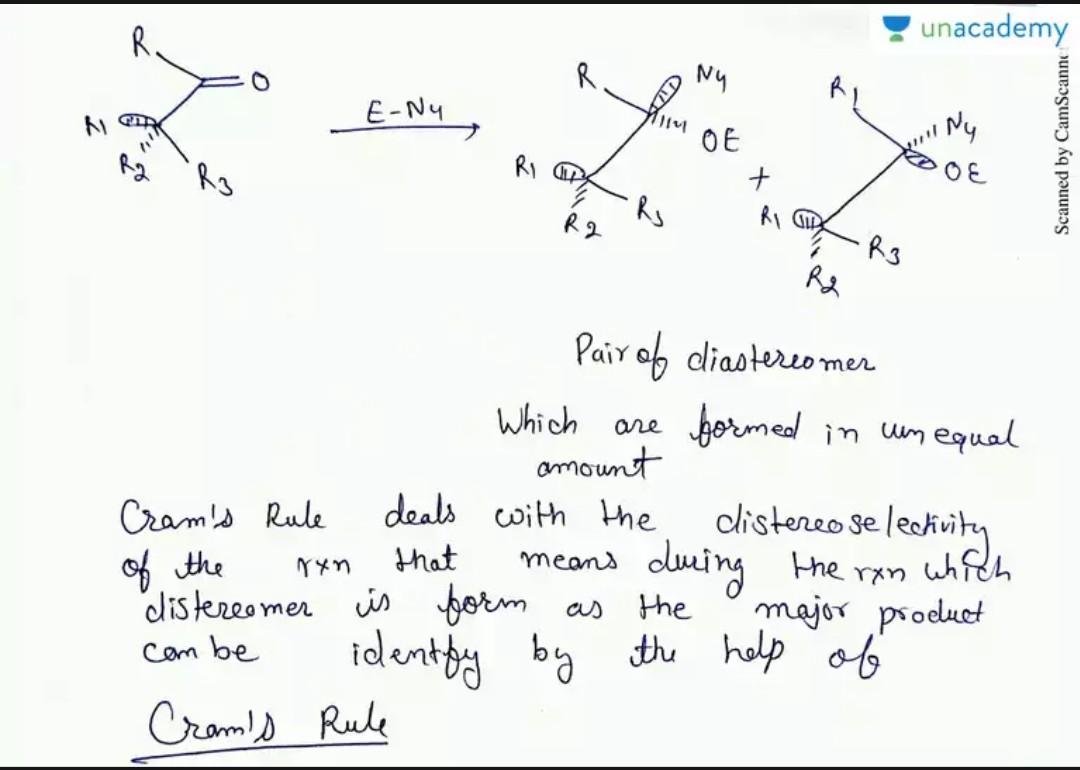 unacademy
Scanned by CamScanne
R
O
R1
R2
R3
E-Nu
R
Nu
OE
R1
R2
R3
+
R1
Nu
OE
R1
R2
R3
Pair of diastereomer
Which are formed in unequal
amount
Cram's Rule deals with the distereoselectivity
of the rxn that means during the rxn which
distereomer is form as the major product
can be identfy by the help of
Cram's Rule